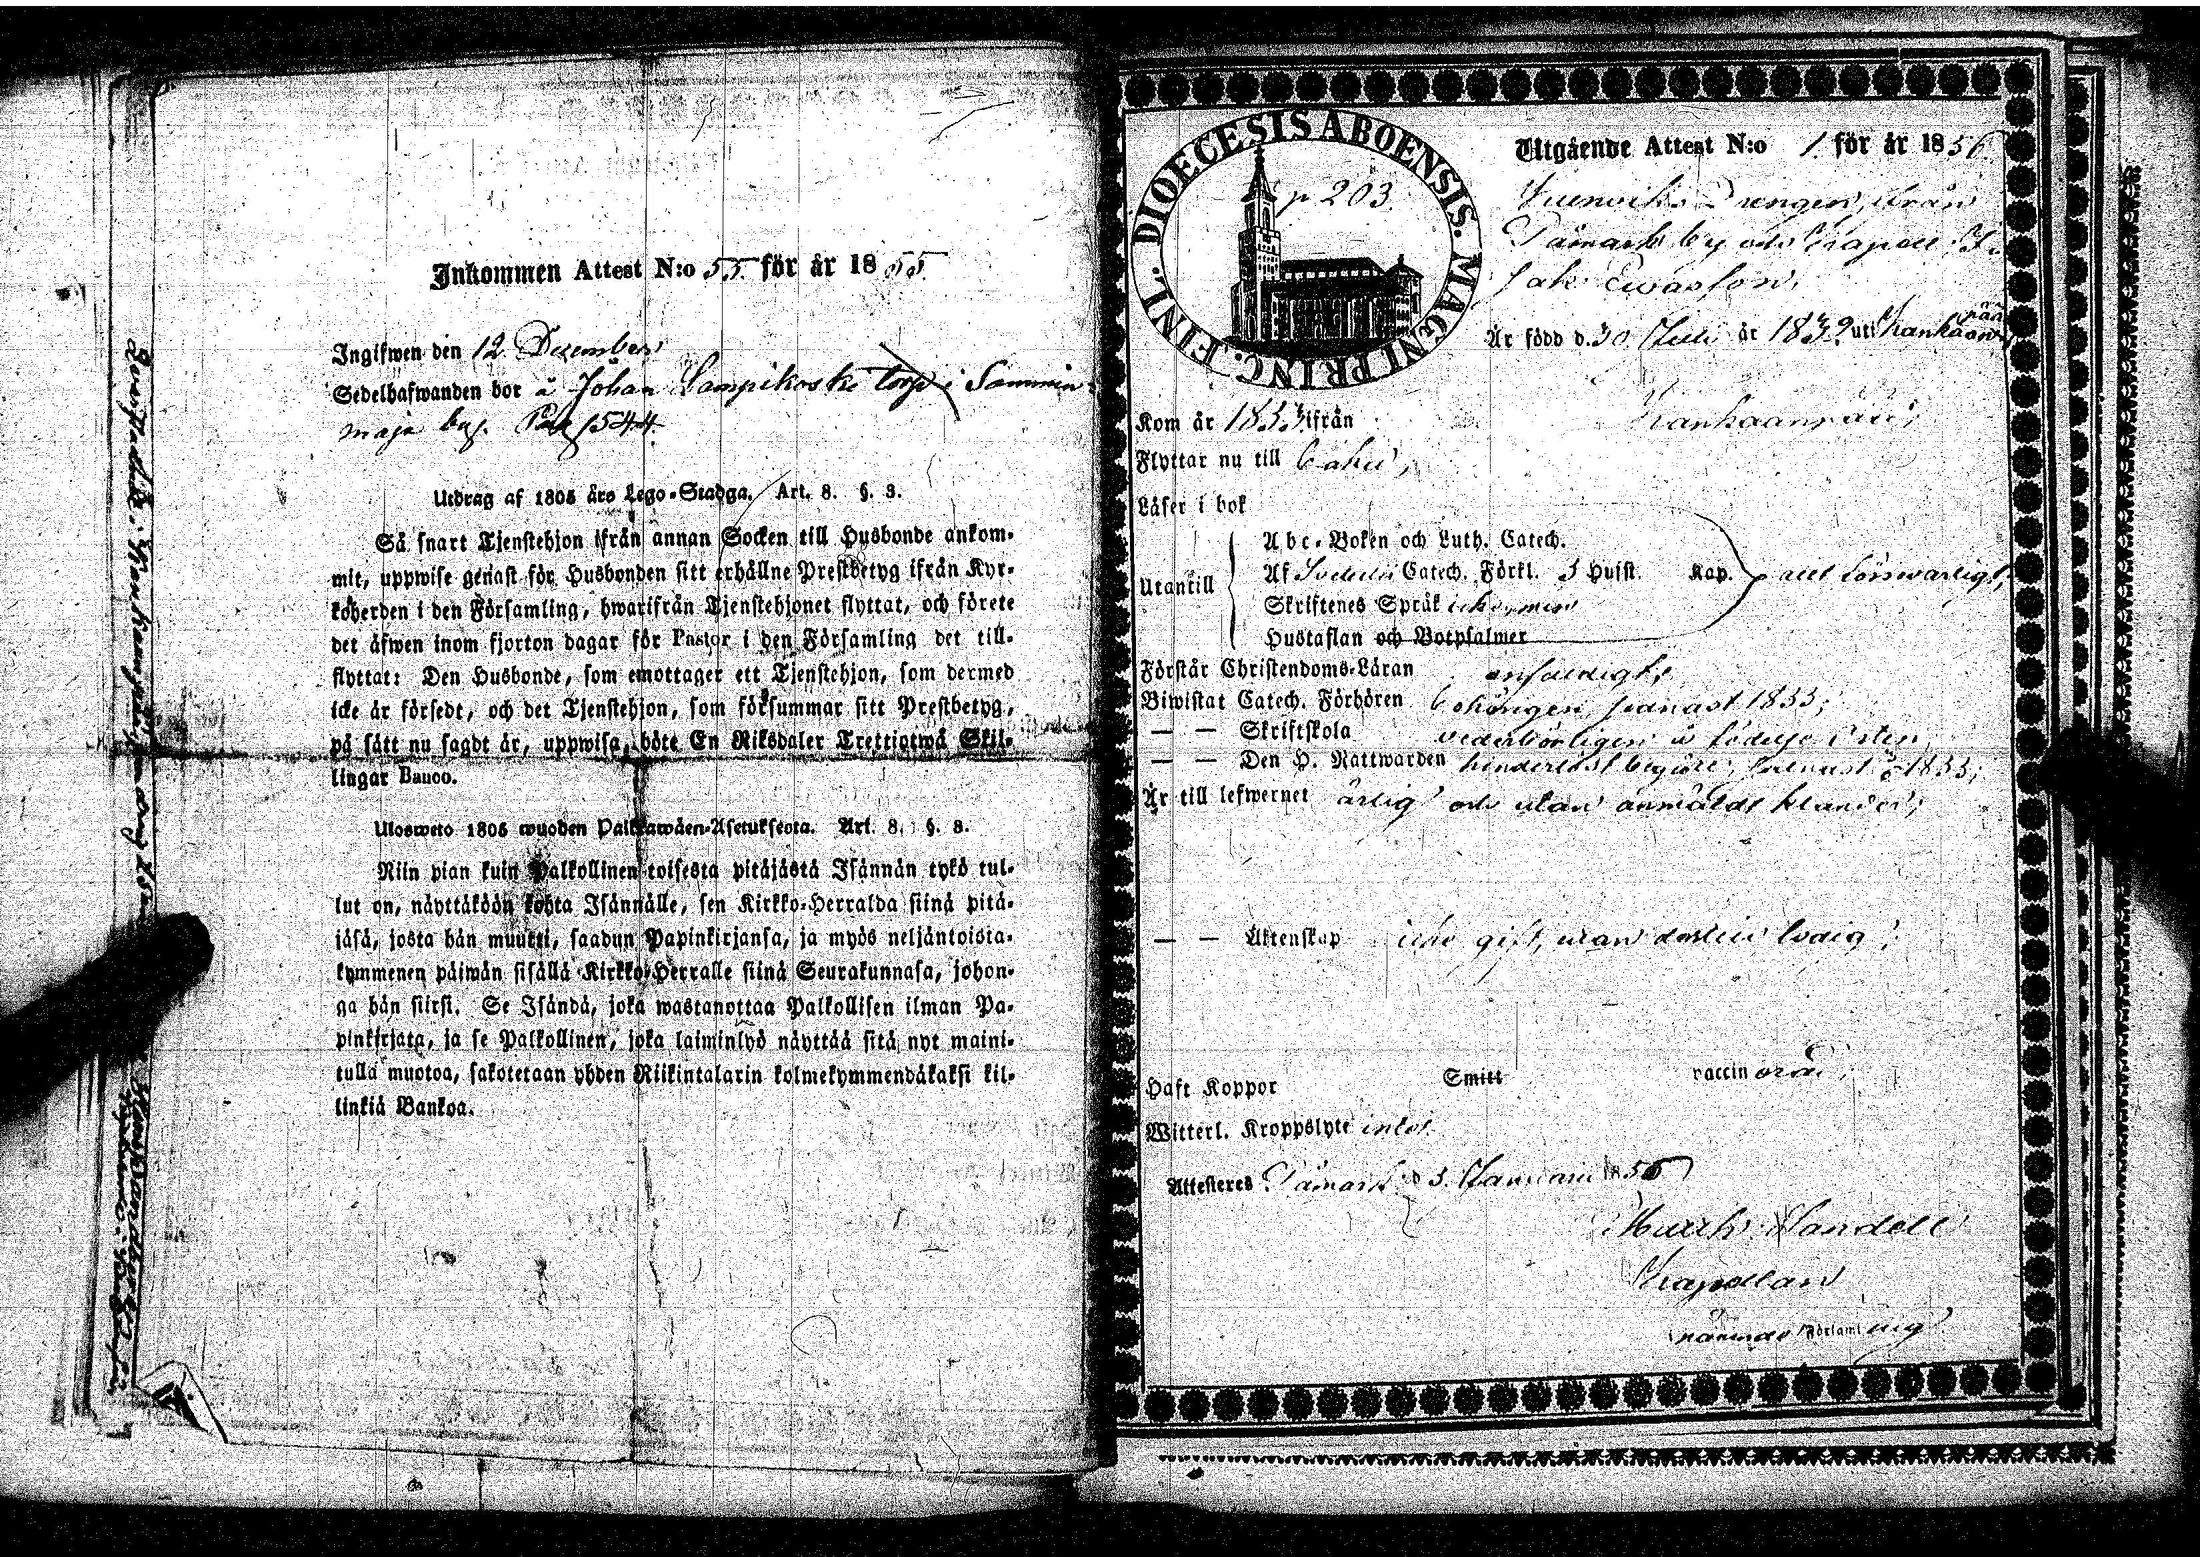 Inkommen Attest N:o 55 för år 1855
Ingifwen den 12 December
Sedelhafwanden bor å Johan Lampikoski torp i Sammin-
maja by. Pag 1544.
Utdrag af 1805 års Lego-Stadga. Art. 8. §. 3.
Så snart Tjenstehjon ifrån annan Socken till Husbonde ankom-
mit, uppwise genast för Husbonden sitt erhållne Prestbetyg ifrån Kyr-
koherden i den Församling, hwarifrån Tjenstehjonet flyttat, och förete
det äfwen inom fjorton dagar för Pastor i den Församling det till-
flyttat: Den Husbonde, som emottager ett Tjenstehjon, som dermed
icke är försedt, och det Tjenstehjon, som försummar sitt Prestbetyg,
på sätt nu sagdt är, uppwisa, böte En Riksdaler Trettiotwå Skil-
lingar Banco.
Ulosweto 1805 wuoden Palkkawäen-Asetuksesta. Art. 8. §. 3.
Niin pian kuin Palkollinen toisesta pitäjästä Isännän tykö tul-
lut on, näyttäköön kohta Isännälle, sen Kirkko-Herralda siinä pitä-
jäsä, josta hän muutti, saadun Papinkirjansa, ja myös neljäntoista-
kymmenen päiwän sisällä Kirkko-Herralle siinä Seurakunnasa, johon-
ga hän siirsi. Se Isändä, joka wastanottaa Palkollisen ilman Pa-
pinkirjata, ja se Palkollinen, joka laiminlyö näyttää sitä nyt maini-
tulla muotoa, sakotetaan yhden Riikintalarin kolmekymmendäkaksi kil-
linkiä Bankoa.
DIOECESIS ABOENSIS. MAGNI PRINC. FINL.
p 203.
Utgående Attest N:o 1. för år 1856.
Drengen, ifrån
Påmark by och Kapell,
Jak Ewasson,
Är född d. 30 Juli år 1832 uti Kankaanpää
Kom år 1853 ifrån Kankaanpää;
Flyttar nu till
Läser i bok
Utantill
Abc-Boken och Luth. Catech.
Af Svebelii Catech. Förkl. 3 Husst. Kap. allt försvarligt;
Skriftenes Språk icke,
Hustaflan och Botpsalmer
Förstår Christendoms-Läran enfaldigt;
Biwistat Catech. Förhören behörigen, senast 1855;
— — Skriftskola vederbörligen å födelse orten;
— — Den H. Nattwarden senast 1855;
Är till lefwernet ärlig och utan anmäldt klander;
— — Äktenskap icke gift, utan dertill ledig;
Haft Koppor Smitt vaccin
Witterl. Kroppslyte intet.
Attesteres Påmark d 3. Januari 1856
Sandell
Kapellan
Församl ing